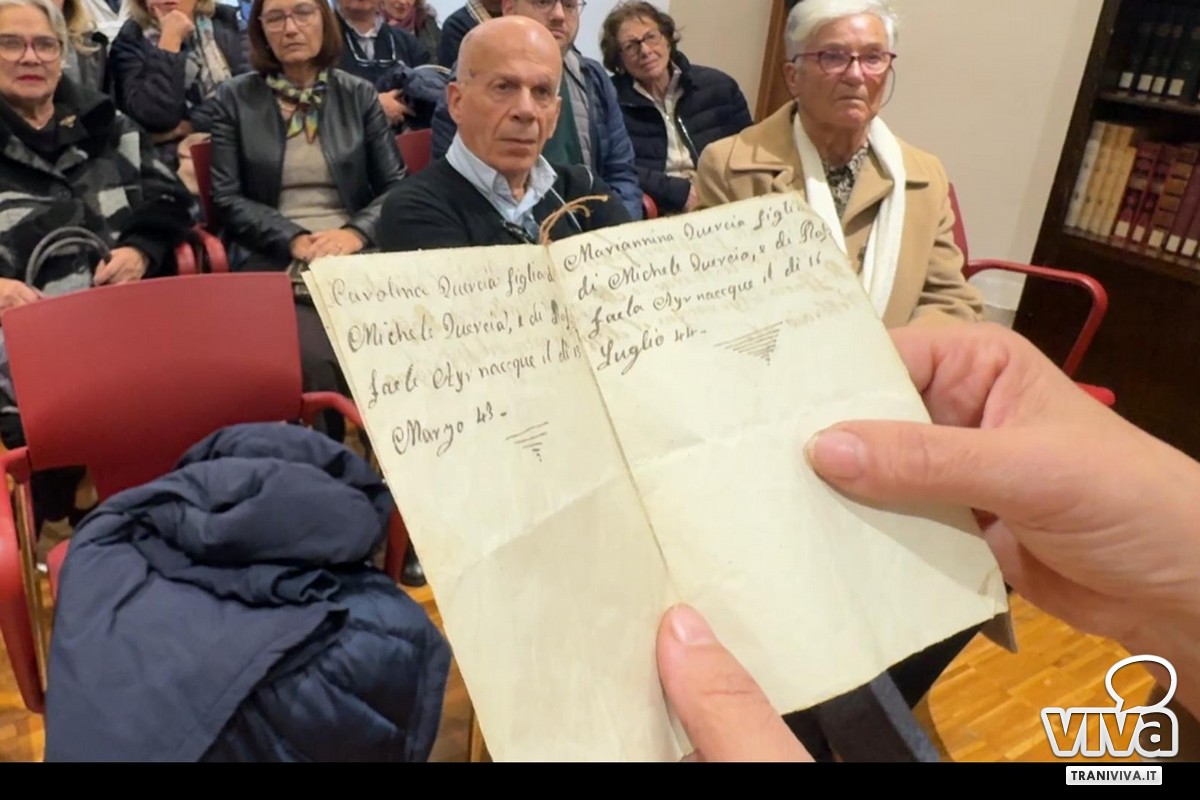 Carolina Quercia figlia d
Michele Quercia, e di
faele nacque il di 13
Marzo 43-
Mariannina Quercia figlia
di Michele Quercia, e di
faela nacque il di 16
Luglio 44-
viva
TRANIVIVA.IT